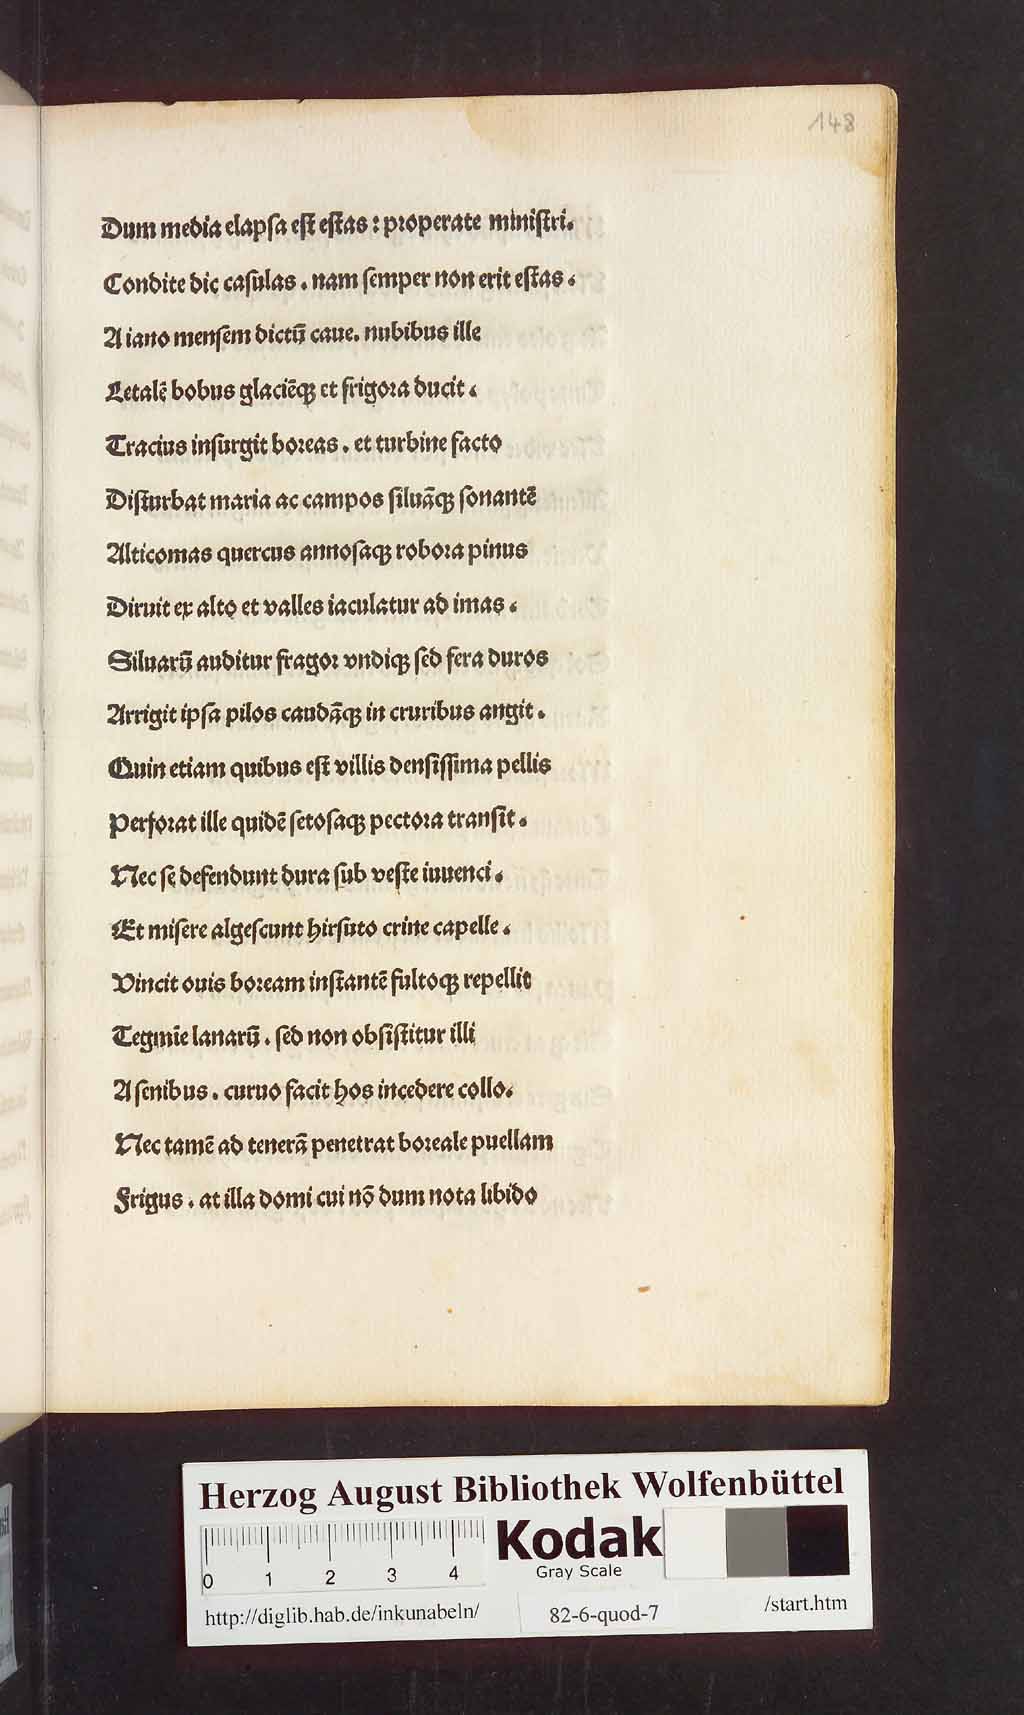 148
Dum media elapſa eſt eſtas : properate miniſtri.
Condite dic caſulas . nam ſemper non erit eſtas .
A iano menſem dictū caue. nubibus ille
Letalē bobus glaciēqꝫ et frigora ducit .
Tracius inſurgit boreas . et turbine facto
Diſturbat maria ac campos ſiluāqꝫ ſonantē
Alticomas quercus annoſaqꝫ robora pinus
Diruit ex alto et valles iaculatur ad imas .
Siluarū auditur fragor vndiqꝫ ſed fera duros
Arrigit ipſa pilos caudāqꝫ in cruribus angit .
Quin etiam quibus eſt villis denſiſſima pellis
Perforat ille quidē ſetoſaqꝫ pectora tranſit .
Nec ſe defendunt dura ſub veſte iuuenci .
Et miſere algeſcunt hirſuto crine capelle .
Vincit ouis boream inſtantē fultoqꝫ repellit
Tegmīe lanarū . ſed non obſiſtitur illi
A ſenibus . curuo facit hos incedere collo.
Nec tamē ad tenerā penetrat boreale puellam
Frigus . at illa domi cui nō dum nota libido
Herzog August Bibliothek Wolfenbüttel
0 1 2 3 4
Kodak
Gray Scale
http://diglib.hab.de/inkunabeln/ 82-6-quod-7 /start.htm